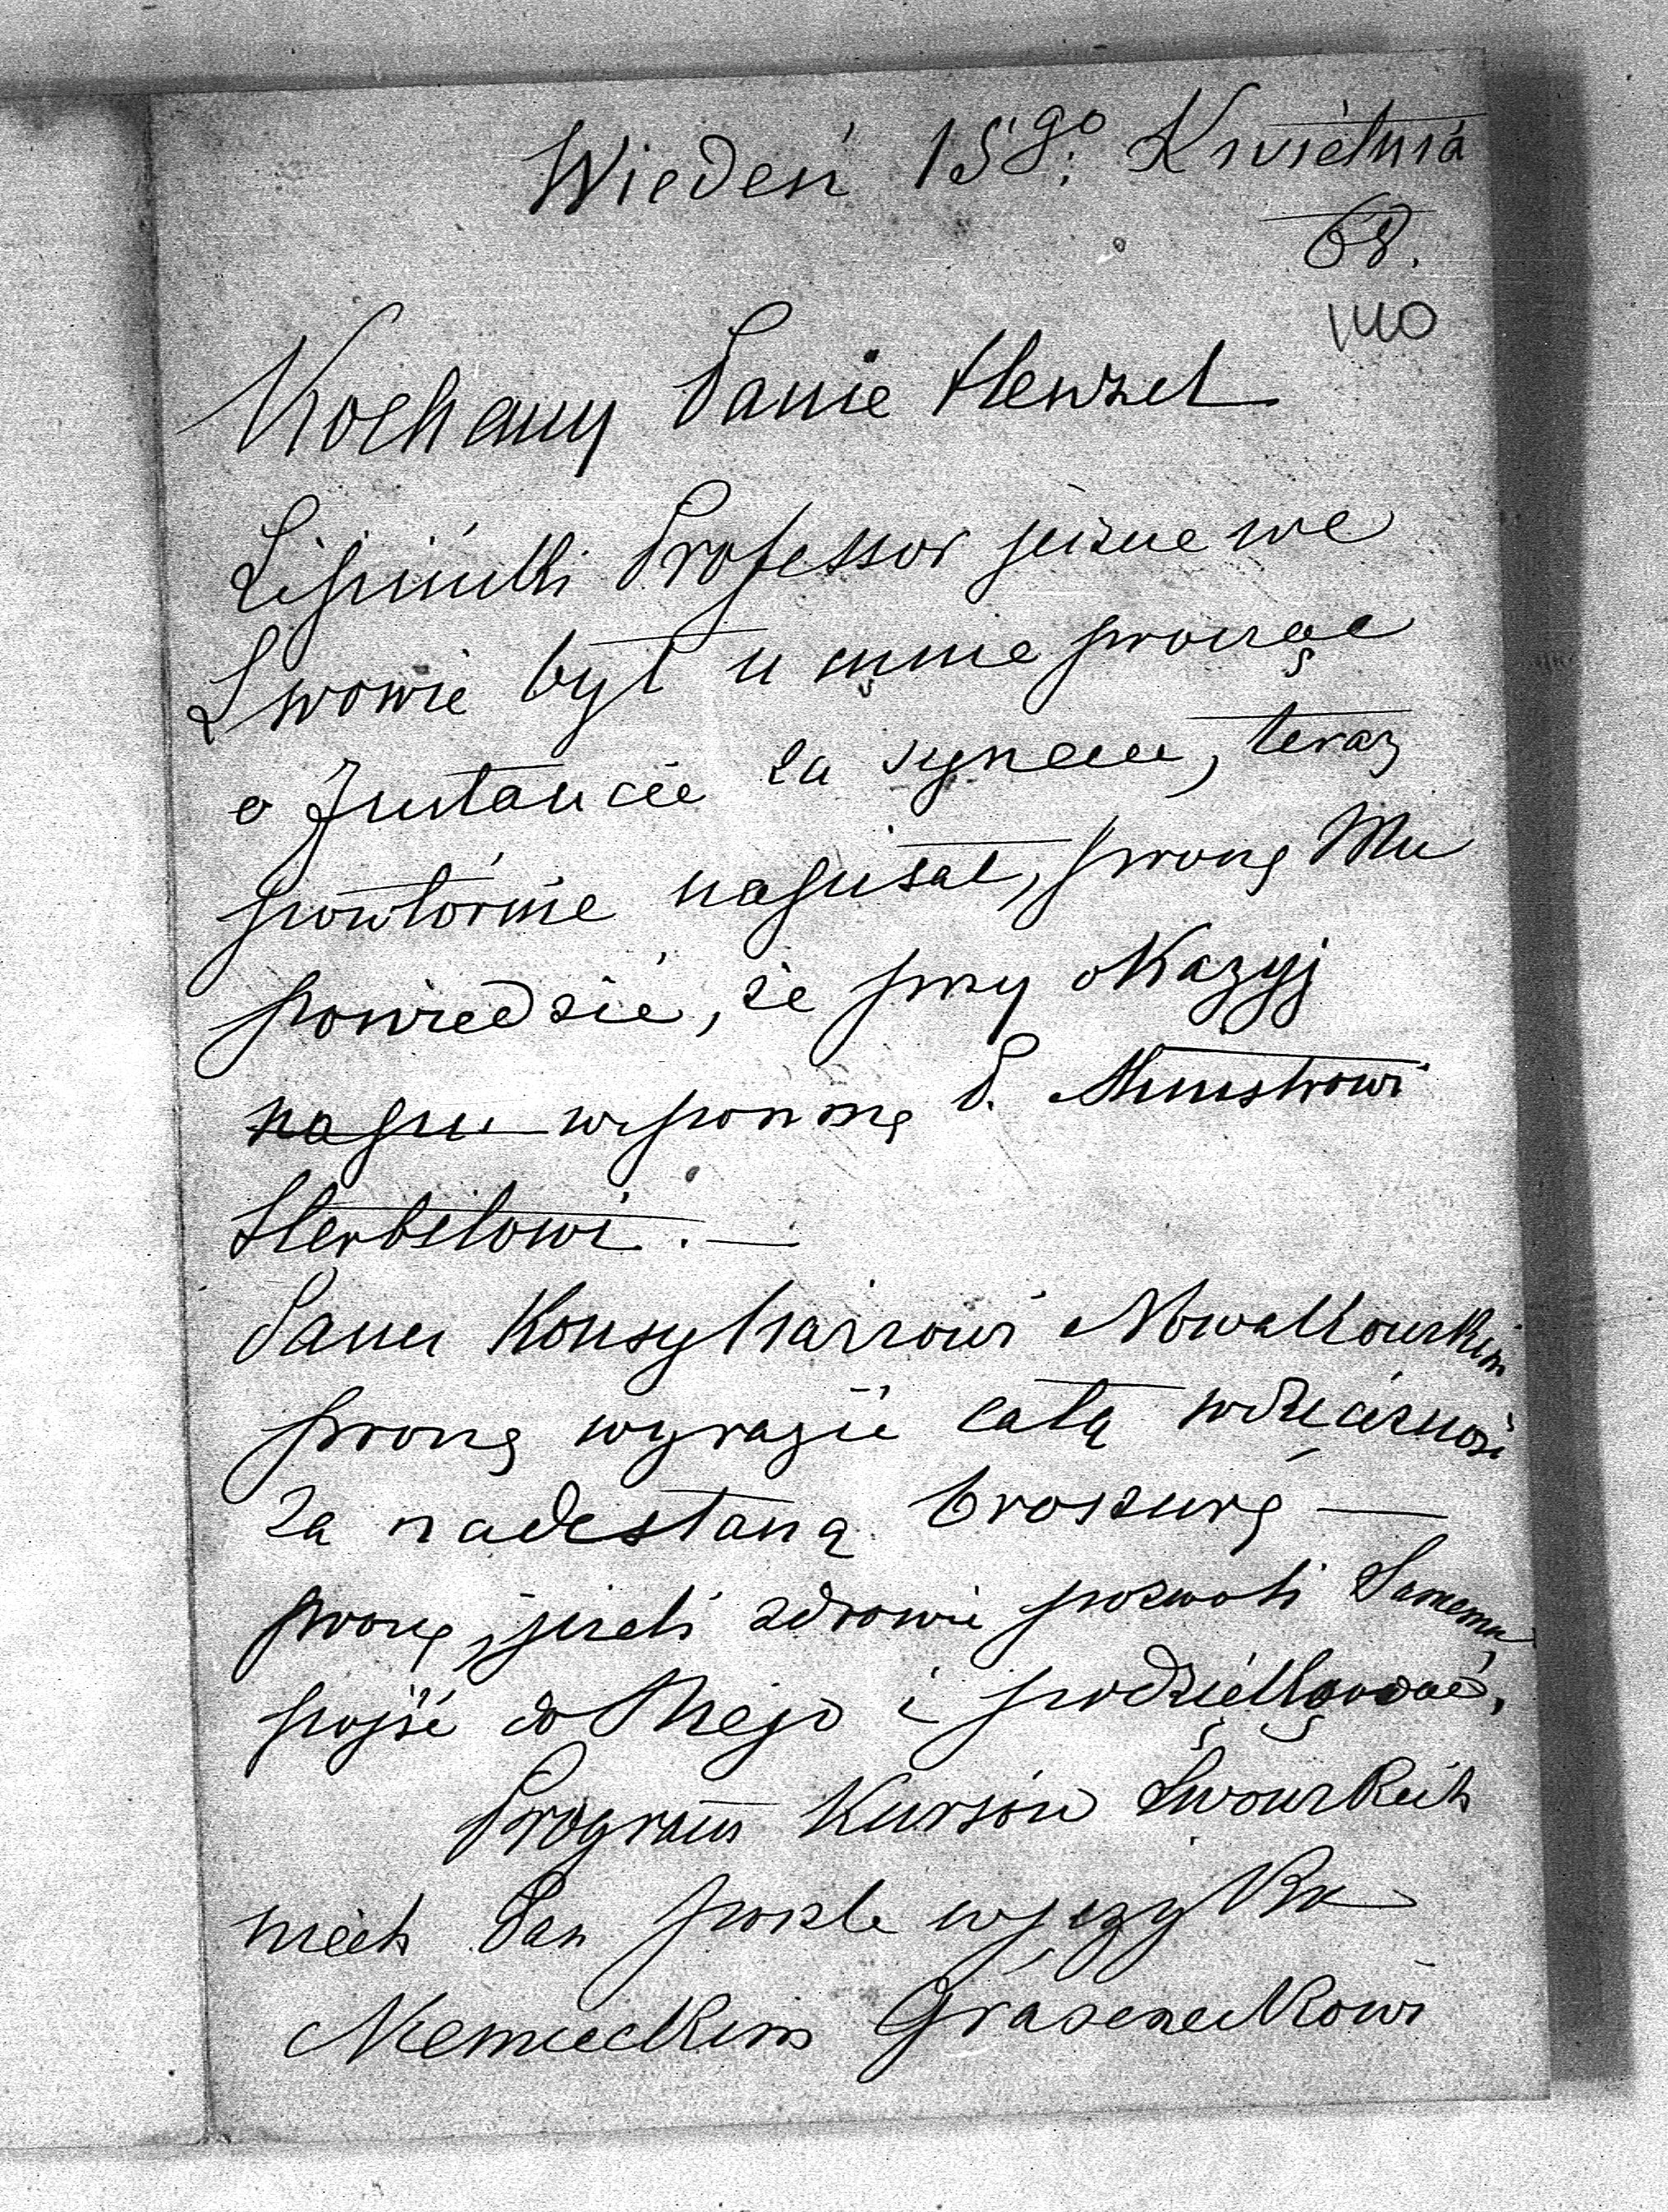 Wiedeń 15go. Kwietnia
68.
140
Kochany Panie Henzel
Lipiński Professor jeszcze we
Lwowie był u mnie prosząc
o Instancie za synem, teraz
powtórnie napisał, proszę Mu
powiedzieć, że przy okazyj
napisz wspomnę P. Ministrowi
Herbstowi. —
Panu Konsyliarzowi Nowakowskiem
proszę wyrazić całą wdzięczność
za nadesłaną broszurę —
proszę, jeżeli zdrowie pozwoli Samemu,
pojść do Niego i podziękować.
Program Kursów Lwowskich
niech Pan poszle w języku
Niemieckim